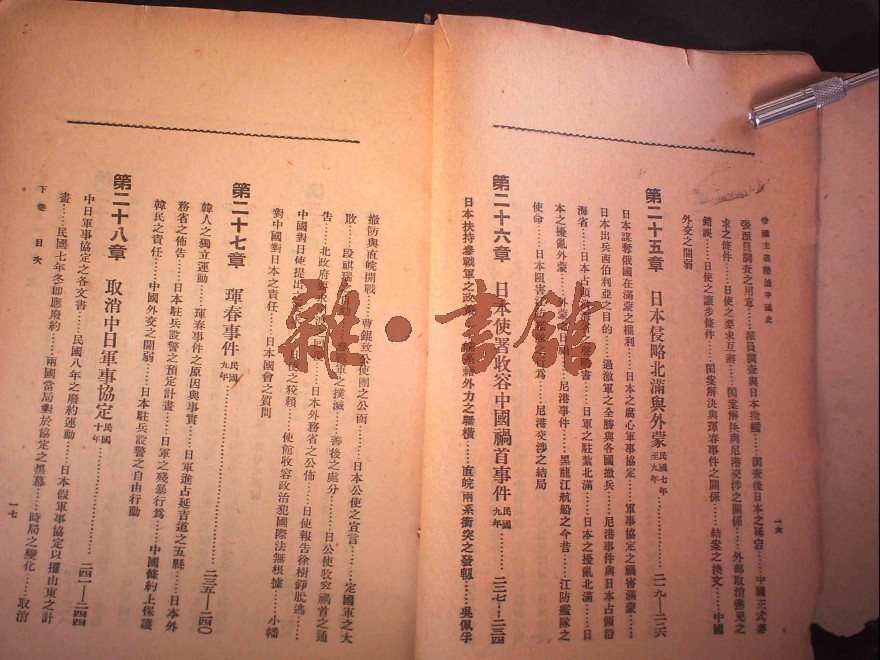 帝國主義壓迫中國史
一六
張派員調查之用意……派員調查與日本撤艦……閩案後日本之……中國正式要
求之條件……日使之要求互謝……閩案解決與尼港交涉之關係……外部取消佛見之
錯誤……日使之讓步條件……閩案解決與琿春事件之關係……結案之換文……中國
外交之闇弱
第二十五章 日本侵略北滿與外蒙 民國七年至九年……二一九—二二六
日本謀奪俄國在滿蒙之權利……日本之處心軍事協定……軍事協定之禍害滿蒙……
日本出兵西伯利亞之目的……過激軍之全勝與各國撤兵……尼港事件與日本占領沿
海省……日本占領……書……日軍之駐紮北滿……日本之擾亂北滿……日
本之擾亂外蒙……外蒙……尼港事件……黑龍江航船之今昔……江防艦隊之
使命……日本阻害江防……行為……尼港交涉之結局
第二十六章 日本使署收容中國禍首事件 民國九年……二二七—二三四
日本扶持參戰軍之政策……藉外力之驕橫……直皖兩系衝突之發軔……吳佩孚
撤防與直皖開戰……曹錕致公使團之公函……日本公使之宣言……定國軍之大
敗……段祺瑞……軍之撲滅……善後之處分……日公使收容禍首之通
告……北政府要求……日本外務省之公佈……日使報告徐樹錚脫逃……
中國對日使提出……使之狡賴……使館收容政治犯國際法無根據……小幡
對中國對日本之責任……日本國會之質問
第二十七章 琿春事件 民國九年……二三五—二四〇
韓人之獨立運動……琿春事件之原因與事實……日軍進占延吉道之五縣……日本外
務省之佈告……日本駐兵設警之預定計畫……日軍之殘暴行為……中國條約上保護
韓民之責任……中國外交之闇弱……日本駐兵設警之自由行動
第二十八章 取消中日軍事協定 民國十年……二四一—二四四
中日軍事協定之各文書……民國八年之廢約運動……日本假軍事協定以攫山東之計
畫……民國七年冬即應廢約……兩國當局對於協定之黑幕……時局之變化……取消
下卷 目次
一七
雜·書館